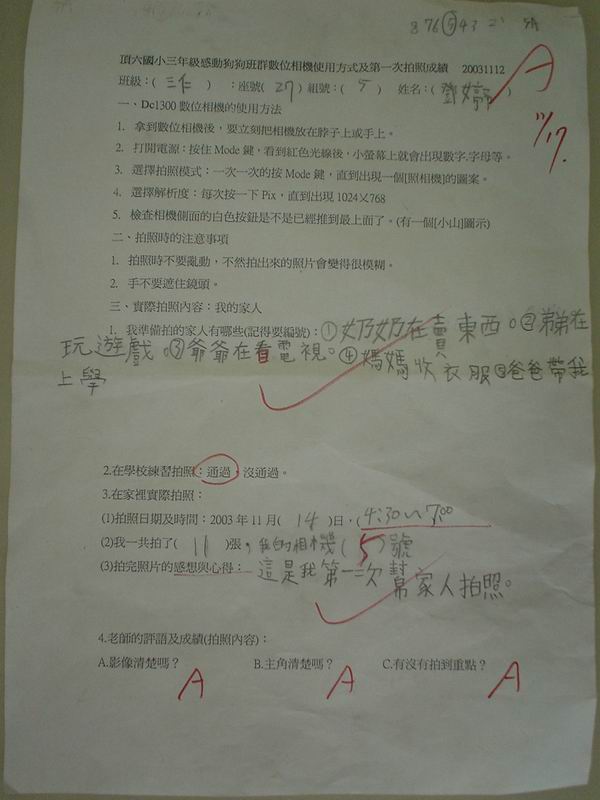 8 76 ⑤ 43 21
頂六國小三年級感動狗狗班群數位相機使用方式及第一次拍照成績 20031112
A
班級：( 三仁 ) ：座號( 27 ) 組號：( 5 ) 姓名：( 鄧婷 )
11/17.
一、Dc1300 數位相機的使用方法
1. 拿到數位相機後，要立刻把相機放在脖子上或手上。
2. 打開電源：按住 Mode 鍵，看到紅色光線後，小螢幕上就會出現數字.字母等。
3. 選擇拍照模式：一次一次的按 Mode 鍵，直到出現一個[照相機]的圖案。
4. 選擇解析度：每次按一下 Pix，直到出現 1024×768
5. 檢查相機側面的白色按鈕是不是已經推到最上面了。(有一個[小山]圖示)
二、拍照時的注意事項
1. 拍照時不要亂動，不然拍出來的照片會變得很模糊。
2. 手不要遮住鏡頭。
三、實際拍照內容：我的家人
1. 我準備拍的家人有哪些(記得要編號)：①奶奶在賣東西。②弟弟在
玩遊戲。③爺爺在看電視。④媽媽收衣服⑤爸爸帶我
上學
2.在學校練習拍照：通過，沒通過。
3.在家裡實際拍照：
(1)拍照日期及時間：2003 年 11 月( 14 )日，(4:30~7:00
(2)我一共拍了( 11 )張，我的相機( 5 )號
(3)拍完照片的感想與心得：這是我第一次幫家人拍照。
4.老師的評語及成績(拍照內容)：
A.影像清楚嗎？ B.主角清楚嗎？ C.有沒有拍到重點？
A A A